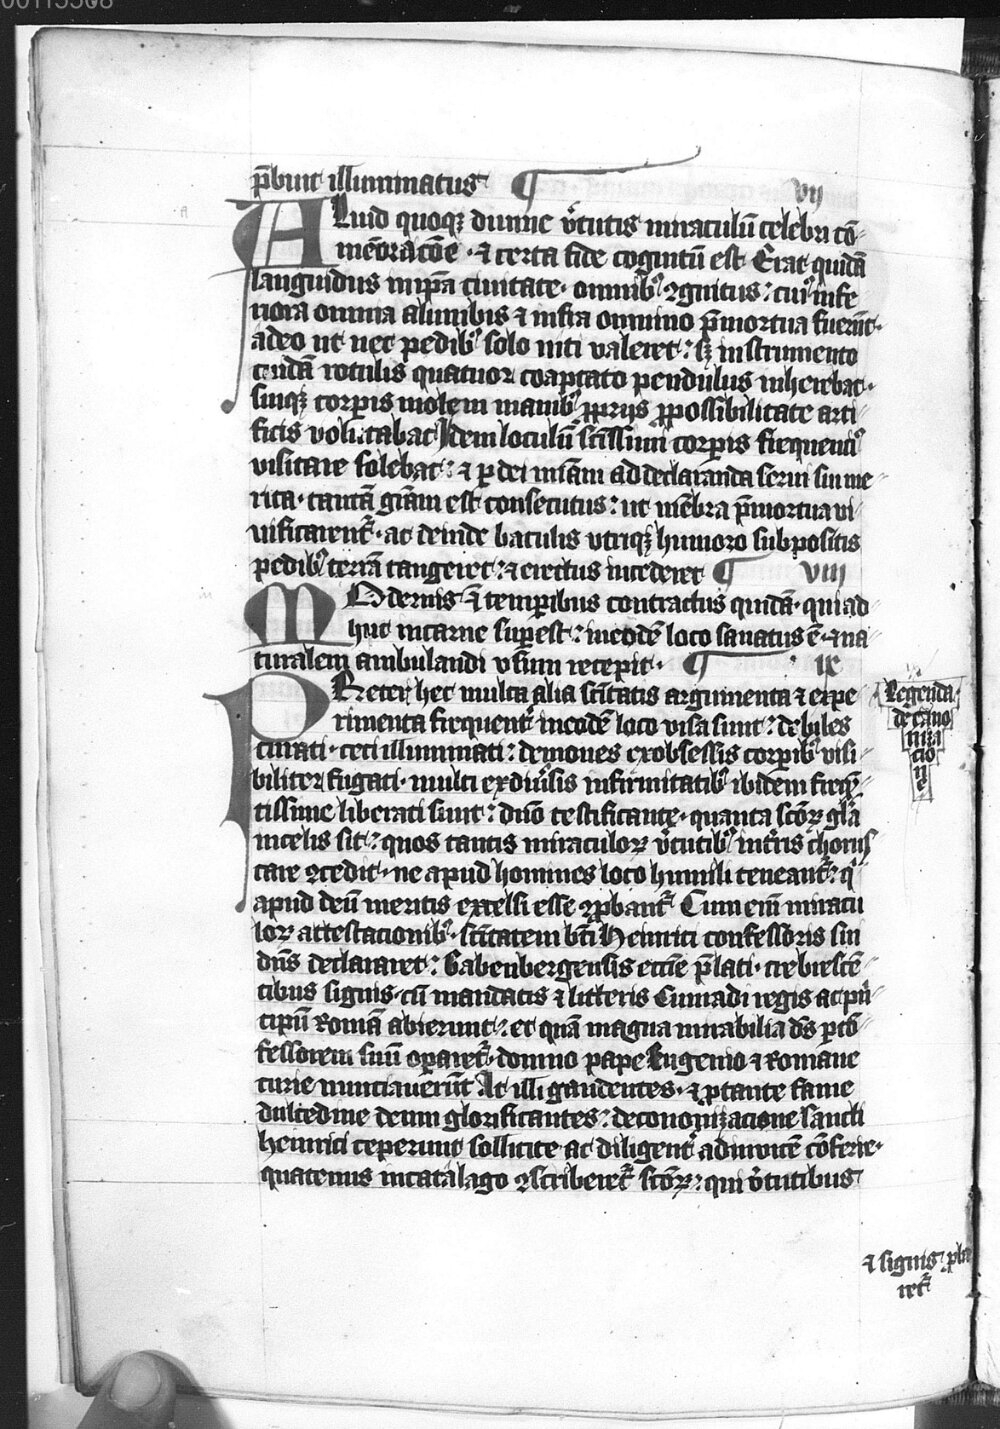 00115508
p̄buit illuminatus
vij
Aliud quoqꝫ diuine v̓tutis miraculū celebri cō-
mēorac̄oe · ⁊ certa fide cognitū est Erat quidā
languidus in ip̄a ciuitate · omnibꝰ ꝯgnitus: cuiꝰ infe
riora omnia a lumbis ⁊ infra omnino p̄mortua fuerūt ·
adeo ut nec pedibꝰ solo niti valeret: sꝫ instrumento
cuidā rotulis quatuor coaptato pendulus inherebat ·
suiqꝫ corꝑis molem manibꝰ ꝓprijs ꝓ possibilitate arti-
ficis volutabat Idem loculū sc̄issimi corꝑis frequent̓
visitare solebat: ⁊ ꝑ dei mīam ad declarānda serui sui me-
rita · tantā grām est consecutus: ut mēbra p̄mortua vi-
uificarentᷣ · ac deinde baculis vtriqꝫ humero subpositis
pedibꝰ terrā tangeret: ⁊ erectus incederet
viii
MOdernis ē temꝑibus contractus quidā · qui ad-
huc in carne suꝑest: in eodē loco sanatus ē · ⁊ na-
turalem ambulandi vsum recepit ·
ix
PReter hec multa alia sc̄itatis argumenta ⁊ expe-
rimenta frequent̓ in eodē loco visa sunt: debiles
curati · ceci illuminati: demones ex obsessis corꝑibꝰ visi-
biliter fugati · multi ex diu̓sis infirmitatibꝰ ibidem freq̄n-
tissime liberati sunt: dn̄o testificante · quanta sc̄oꝝ gl̄a
in celis sit: quos tantis miraculoꝝ v̓tutibꝰ in t̓ris chorus-
care ꝯcedit · ne apud homines loco humili teneantᷣ: qͥ
apud deū meritis excelsi esse ꝯꝓbantᷣ Cum em̄ miracu
loꝝ attestacionibꝰ · sc̄itatem bt̄i Heinrici confessoris sui
dn̄s declararet: Babenbergensis ecc̄ie p̄lati · crebrescē-
tibus signis · cū mandatis ⁊ litteris Cunradi regis ac pri-
cipū Romā abierunt: et quā magna mirabilia ds̄ ꝑ cō-
fessorem suū oꝑaretᷣ · domno pape Eugenio ⁊ Romane
curie nunciauerūt At illi gaudentes · ⁊ ꝑ tante fame
dulcedine deum glorificantes: de canonizacione sancti
heinrici ceperunt sollicite ac diligent̓ ad inuicē cōferre ·
quatenus in catalago ꝯscriberetᷣ sc̄oꝝ: qui v̓tutibus
Legenda
de cano
niza
cio
n
e
⁊ signis ꝓba
retᷣ